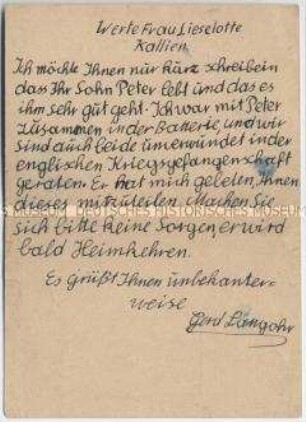 Werte Frau Lieselotte
Kallien.
Ich möchte Ihnen nur kurz schreibein
dass Ihr Sohn Peter lebt und das es
ihm sehr gut geht. Ich war mit Peter
zusammen in der Batterie, und wir
sind auch beide unverwundet in der
englischen Kriegsgefangenschaft
geraten. Er hat mich gebeten, Ihnen
dieses mitzuteilen. Machen Sie
MUSEUM DEUTSCHES HISTORISCHES MUSEUM
sich bitte keine Sorgen, er wird
bald Heimkehren.
Es Grüßt Ihnen unbekanter=
weise
Gerd Langohr